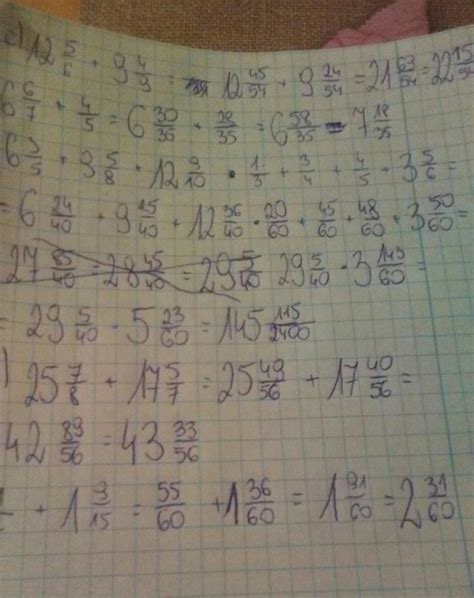 c) 12 5/6 + 9 4/9 = 12 45/54 + 9 24/54 = 21 69/54 = 22 15/54
6 6/7 + 4/5 = 6 30/35 + 28/35 = 6 58/35 = 7 18/35
6 3/5 + 9 5/8 + 12 9/10 · 1/3 + 3/4 + 4/5 + 3 5/6 =
= 6 24/40 + 9 25/40 + 12 36/40 · 20/60 + 45/60 + 48/60 + 3 50/60 =
27 85/40 = 28 45/40 = 29 5/40 29 5/40 · 3 143/60 =
= 29 5/40 · 5 23/60 = 145 115/2400
) 25 7/8 + 17 5/7 = 25 49/56 + 17 40/56 =
42 89/56 = 43 33/56
+ 1 9/15 = 55/60 + 1 36/60 = 1 91/60 = 2 31/60